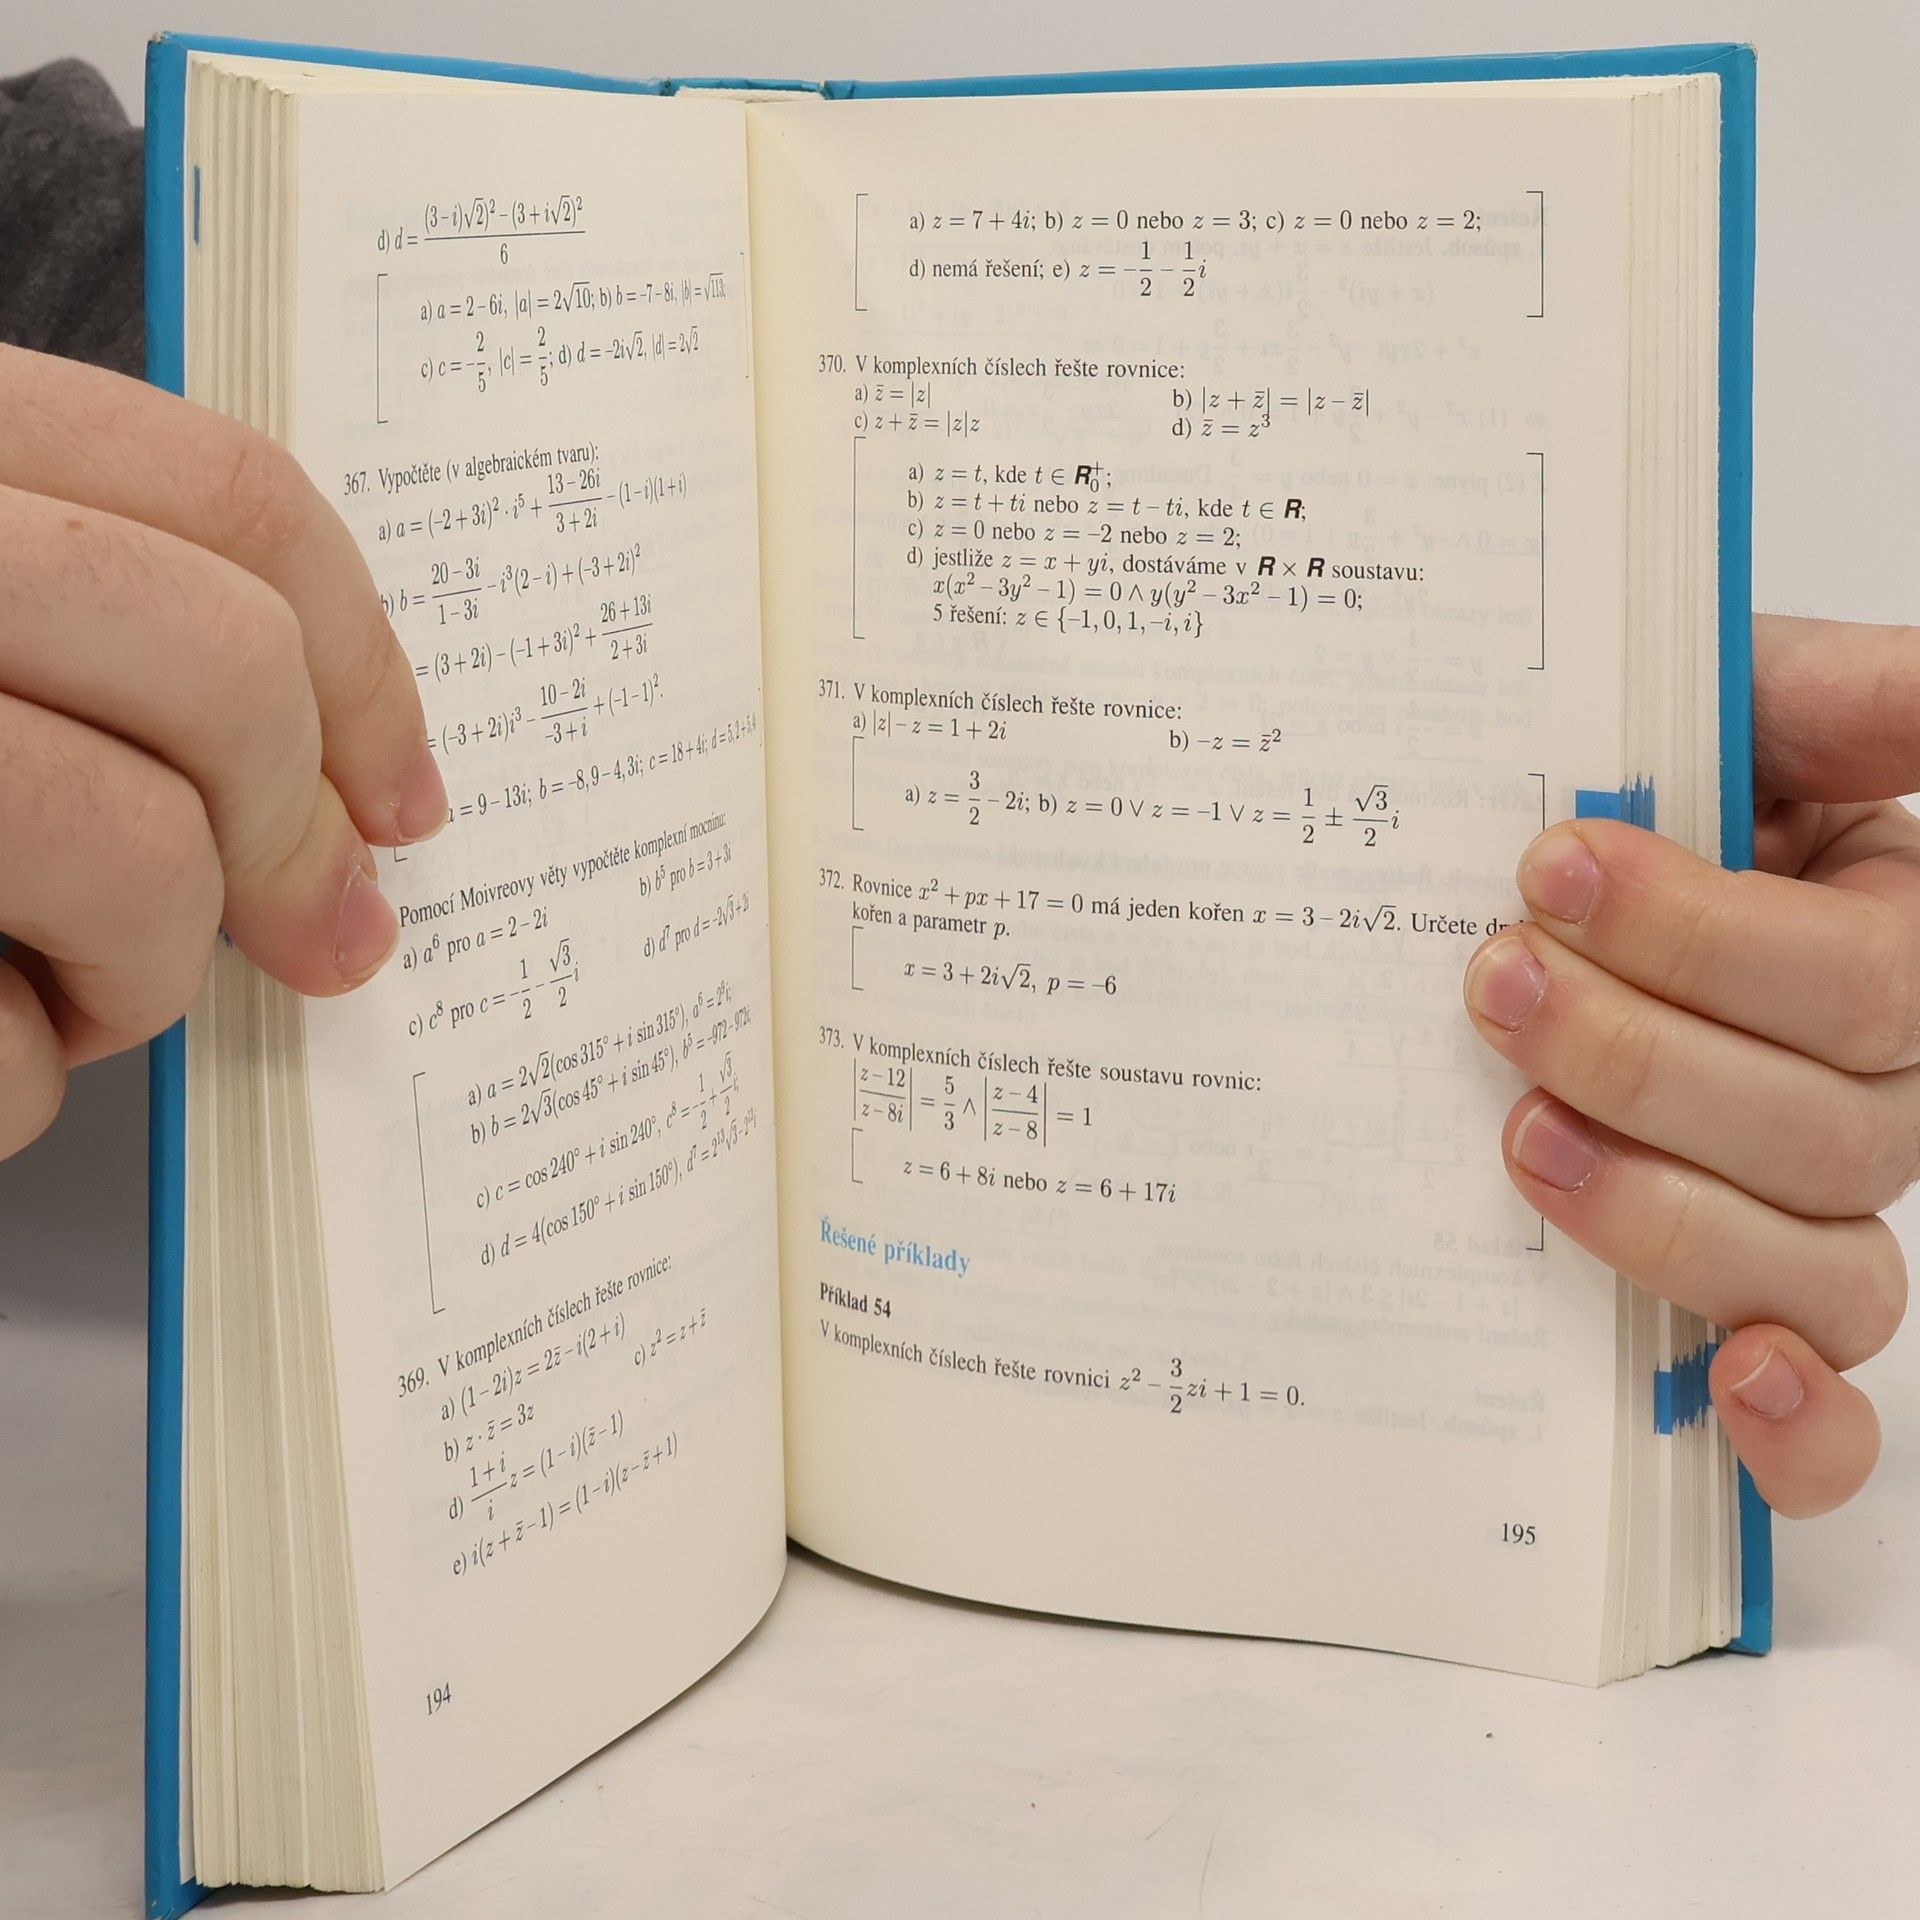 d) d = \frac{(3-i)\sqrt{2})^2-(3+i\sqrt{2})^2}{6}
a) a = 2-6i, |a| = 2\sqrt{10}; b) b = -7-8i, |b| = \sqrt{113};
c) c = -\frac{2}{5}, |c| = \frac{2}{5}; d) d = -2i\sqrt{2}, |d| = 2\sqrt{2}
367. Vypočtěte (v algebraickém tvaru):
a) a = (-2+3i)^2 · i^5 + \frac{13-26i}{3+2i} - (1-i)(1+i)
b) b = \frac{20-3i}{1-3i} - i^3(2-i) + (-3+2i)^2
= (3+2i) - (-1+3i)^2 + \frac{26+13i}{2+3i}
= (-3+2i)i^3 - \frac{10-2i}{-3+i} + (-1-1)^2.
a = 9-13i; b = -8,9-4,3i; c = 18+4i;
Pomocí Moivreovy věty vypočtěte komplexní mocninu:
a) a^6 pro a = 2-2i b) b^5 pro b = 3+3i
c) c^8 pro c = -\frac{1}{2} - \frac{\sqrt{3}}{2}i d) d^7 pro d = -2\sqrt{3}+2i
a) a = 2\sqrt{2}(cos 315° + i sin 315°), a^6 = 2^9i;
b) b = 2\sqrt{3}(cos 45° + i sin 45°), b^5 = -972-972i;
c) c = cos 240° + i sin 240°, c^8 = -\frac{1}{2} + \frac{\sqrt{3}}{2}i;
d) d = 4(cos 150° + i sin 150°), d^7 = 2^{13}\sqrt{3}-2^{13}i
369. V komplexních číslech řešte rovnice:
a) (1-2i)z = 2z̄ - i(2+i)
b) z · z̄ = 3z c) z^2 = z + z̄
d) \frac{1+i}{i}z = (1-i)(z̄-1)
e) i(z + z̄ - 1) = (1-i)(z - z̄ + 1)
194
a) z = 7 + 4i; b) z = 0 nebo z = 3; c) z = 0 nebo z = 2;
d) nemá řešení; e) z = -\frac{1}{2} - \frac{1}{2}i
370. V komplexních číslech řešte rovnice:
a) z̄ = |z| b) |z + z̄| = |z - z̄|
c) z + z̄ = |z|z d) z̄ = z^3
a) z = t, kde t ∈ R_0^+;
b) z = t + ti nebo z = t - ti, kde t ∈ R;
c) z = 0 nebo z = -2 nebo z = 2;
d) jestliže z = x + yi, dostáváme v R × R soustavu:
x(x^2 - 3y^2 - 1) = 0 ∧ y(y^2 - 3x^2 - 1) = 0;
5 řešení: z ∈ {-1, 0, 1, -i, i}
371. V komplexních číslech řešte rovnice:
a) |z| - z = 1 + 2i b) -z = z̄^2
a) z = \frac{3}{2} - 2i; b) z = 0 ∨ z = -1 ∨ z = \frac{1}{2} ± \frac{\sqrt{3}}{2}i
372. Rovnice x^2 + px + 17 = 0 má jeden kořen x = 3 - 2i\sqrt{2}. Určete
kořen a parametr p.
x = 3 + 2i\sqrt{2}, p = -6
373. V komplexních číslech řešte soustavu rovnic:
|\frac{z-12}{z-8i}| = \frac{5}{3} ∧ |\frac{z-4}{z-8}| = 1
z = 6 + 8i nebo z = 6 + 17i
Řešené příklady
Příklad 54
V komplexních číslech řešte rovnici z^2 - \frac{3}{2}zi + 1 = 0.
195